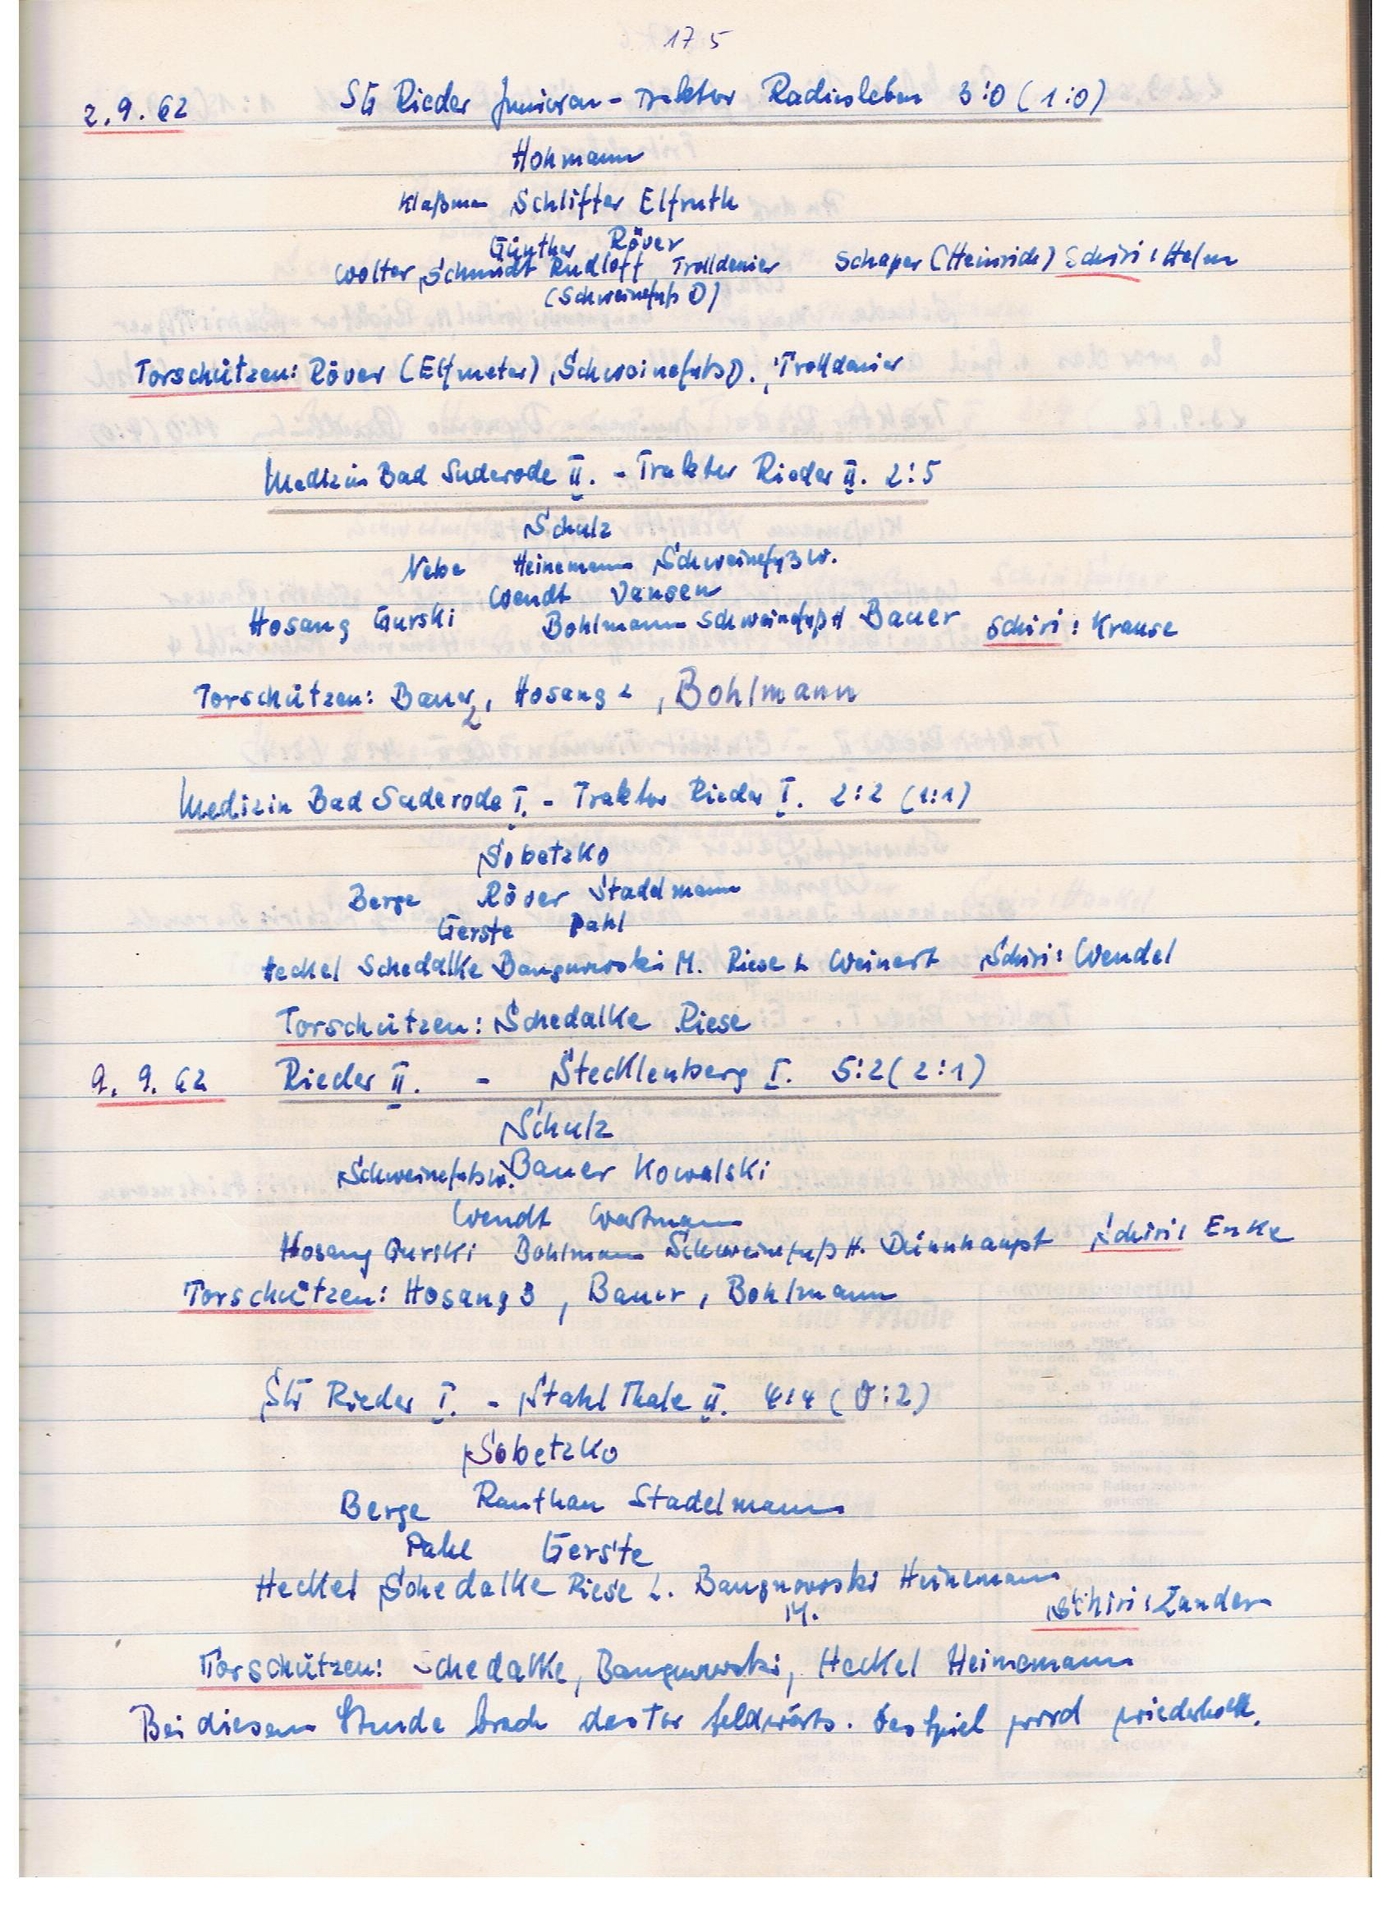 175
2.9.62 SG Rieder Junioren - Traktor Radisleben 3:0 (1:0)
Hohmann
Klaßman Schlifter Elfruth
Günther Röver
Wolter, Schmidt Rudloff Trolldenier Schaper (Heinrich) Schiri: Helm
(Schweinefuß D)
Torschützen: Röver (Elfmeter), Schweinefuß D., Trolldenier
Medizin Bad Suderode II. - Traktor Rieder II. 2:5
Schulz
Nebe Heinemann Schweinefuß W.
Wendt Jansen
Hosang Gurski Bohlmann Schweinefuß H Bauer Schiri: Krause
Torschützen: Bauer 2, Hosang 2, Bohlmann
Medizin Bad Suderode I. - Traktor Rieder I. 2:2 (1:1)
Sobetzko
Berge Röver Stadelmann
Gerste Pahl
Heckel Schedalke Bangnowski M. Riese L Weinert Schiri: Wendel
Torschützen: Schedalke Riese
9.9.62 Rieder II. - Stecklenberg I. 5:2 (2:1)
Schulz
Schweinefuß W. Bauer Kowalski
Wendt Wartmann
Hosang Gurski Bohlmann Schweinefuß H. Dünnhaupt Schiri: Enke
Torschützen: Hosang 3, Bauer, Bohlmann
SG Rieder I. - Stahl Thale II. 4:4 (0:2)
Sobetzko
Berge Ranthan Stadelmann
Pahl Gerste
Heckel Schedalke Riese L. Bangnowski Heinemann
M. Schiri: Zander
Torschützen: Schedalke, Bangnowski, Heckel Heinemann
Bei diesem Stande brach das Tor Feldwärts. Das Spiel wird wiederholt.